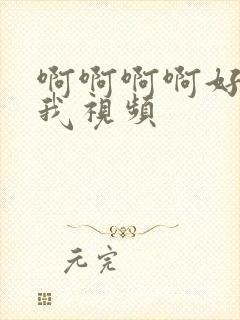 啊啊啊啊好
我視頻
元完